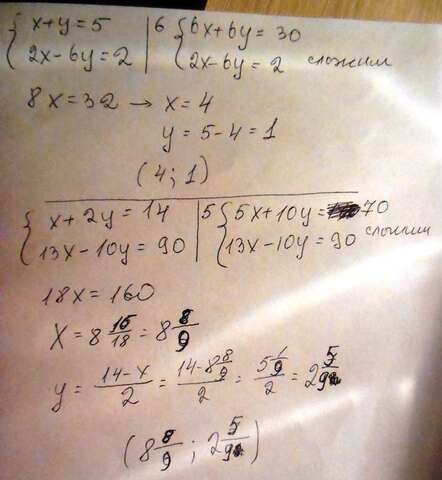 {x+y=5 |6 {6x+6y=30
{2x-6y=2 | {2x-6y=2 сложим
8x=32 → x=4
y=5-4=1
(4; 1)
{x+2y=14 |5 {5x+10y=70
{13x-10y=90 | {13x-10y=90 сложим
18x=160
X=8 16/18=8 8/9
y=(14-x)/2=(14-8 8/9)/2=(5 1/9)/2=2 5/9
(8 8/9; 2 5/9)